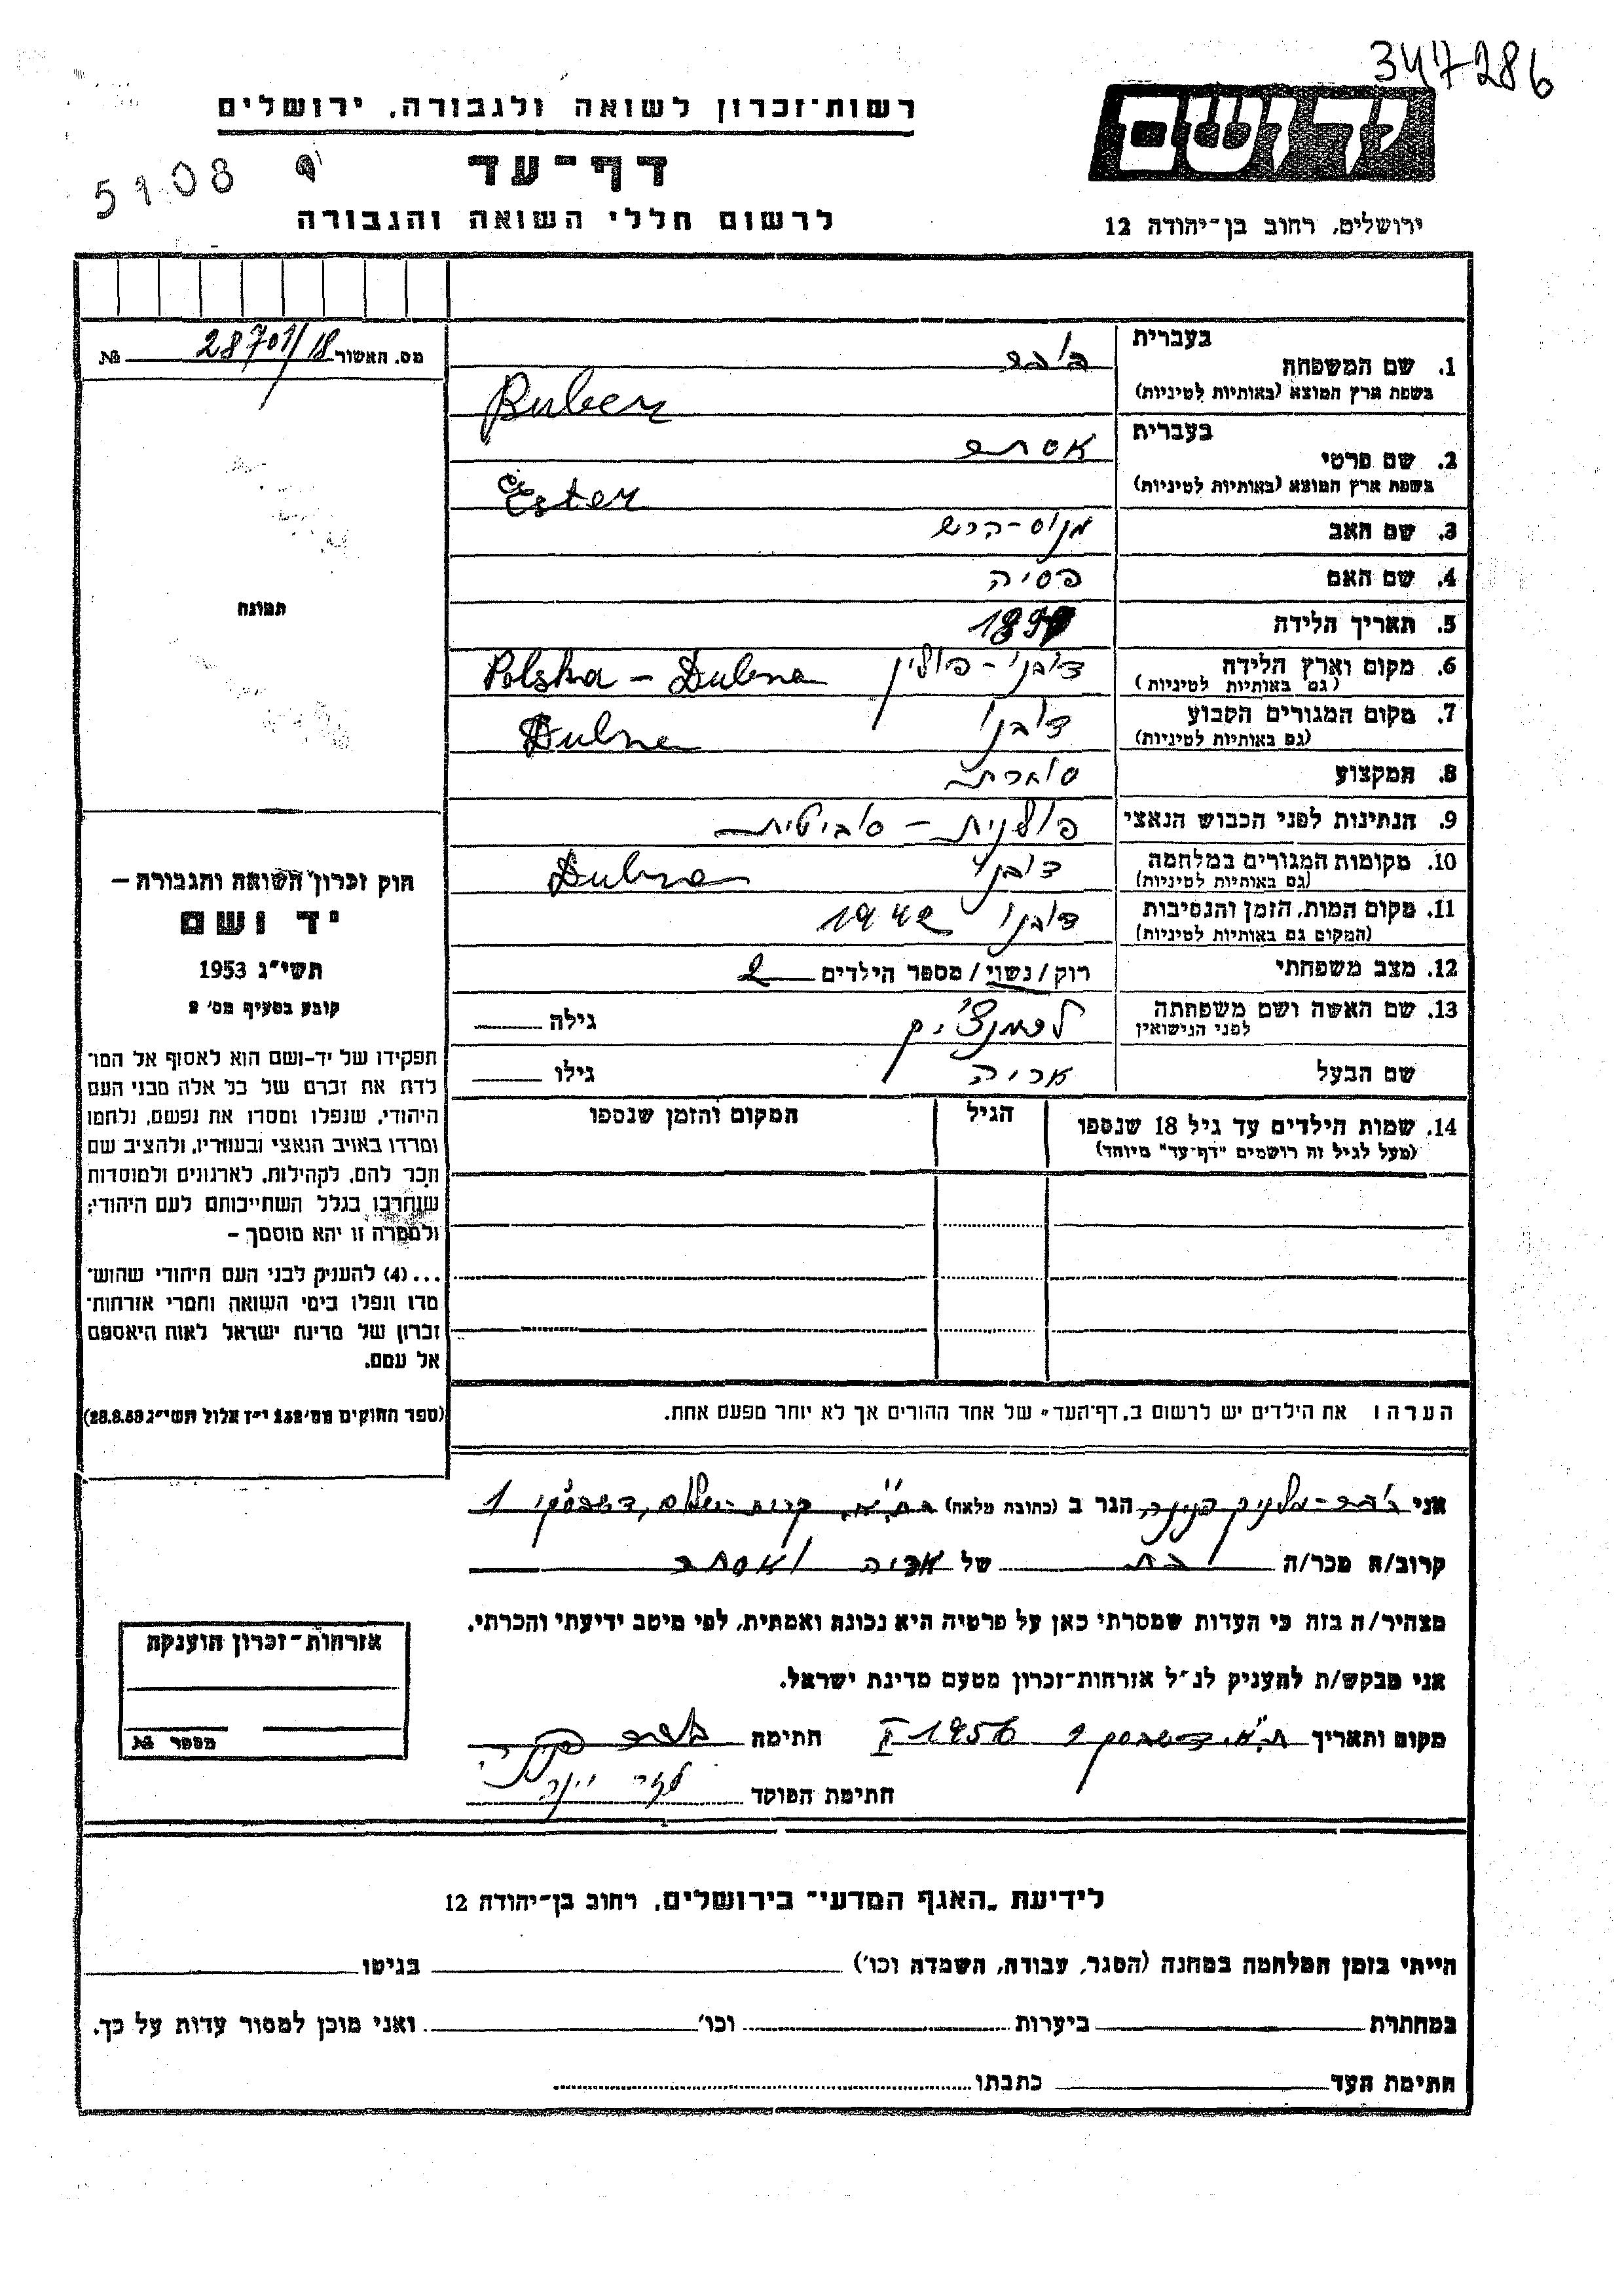 347286
יד ושם
רשות־זכרון לשואה ולגבורה, ירושלים
5108
דף־עד
לרשום חללי השואה והגבורה
ירושלים, רחוב בן־יהודה 12
מס. האשור 28701/18 №
תמונה
חוק זכרון השואה והגבורה –
יד ושם
תשי״ג 1953
קובע בסעיף מס׳ 2
תפקידו של יד-ושם הוא לאסוף אל המו־
לדת את זכרם של כל אלה מבני העם
היהודי, שנפלו ומסרו את נפשם, נלחמו
ומרדו באויב הנאצי ובעוזריו, ולהציב שם
וזכר להם, לקהילות, לארגונים ולמוסדות
שנחרבו בגלל השתייכותם לעם היהודי;
ולמטרה זו יהא מוסמך –
...(4) להעניק לבני העם היהודי שהוש־
מדו ונפלו בימי השואה והמרי אזרחות־
זכרון של מדינת ישראל לאות היאספם
אל עמם.
(ספר החוקים מס׳ 132 י״ז אלול תשי״ג 28.8.53)
1. שם המשפחה
בעברית בובר
בשפת ארץ המוצא (באותיות לטיניות) Buber
2. שם פרטי
בעברית אסתר
בשפת ארץ המוצא (באותיות לטיניות) Ester
3. שם האב מנוס-הרש
4. שם האם פסיה
5. תאריך הלידה
6. מקום וארץ הלידה דובנו - פולין Polska - Dubno
(גם באותיות לטיניות)
7. מקום המגורים הקבוע דובנו Dubno
(גם באותיות לטיניות)
8. המקצוע סוחרת
9. הנתינות לפני הכבוש הנאצי פולנית - סוביטית
10. מקומות המגורים במלחמה דובנו Dubno
(גם באותיות לטיניות)
11. מקום המות, הזמן והנסיבות דובנו 1942
(המקום גם באותיות לטיניות)
12. מצב משפחתי רוק/נשוי/מספר הילדים 2
13. שם האשה ושם משפחתה
לפני הנישואין גילה
שם הבעל אריה גילו
14. שמות הילדים עד גיל 18 שנספו הגיל המקום והזמן שנספו
(מעל לגיל זה רושמים ״דף־עד״ מיוחד)
הערה: את הילדים יש לרשום ב„דף־העד״ של אחד ההורים אך לא יותר מפעם אחת.
אני בובר-מלניק פנינה הגר ב (כתובת מלאה) ת״א, קרית-שלום, 1
קרוב/ה מכר/ה בת של אריה ואסתר
מצהיר/ה בזה כי העדות שמסרתי כאן על פרטיה היא נכונה ואמתית, לפי מיטב ידיעתי והכרתי.
אני מבקש/ת להעניק לנ״ל אזרחות־זכרון מטעם מדינת ישראל.
מקום ותאריך ת״א 1956 חתימה בובר פנינה
חתימת הפוקד
אזרחות־זכרון הוענקה
מספר №
לידיעת „האגף המדעי״ בירושלים, רחוב בן־יהודה 12
הייתי בזמן המלחמה במחנה (הסגר, עבודה, השמדה וכו׳) בגיטו
במחתרת ביערות וכו׳ ואני מוכן למסור עדות על כך.
חתימת העד כתבתו